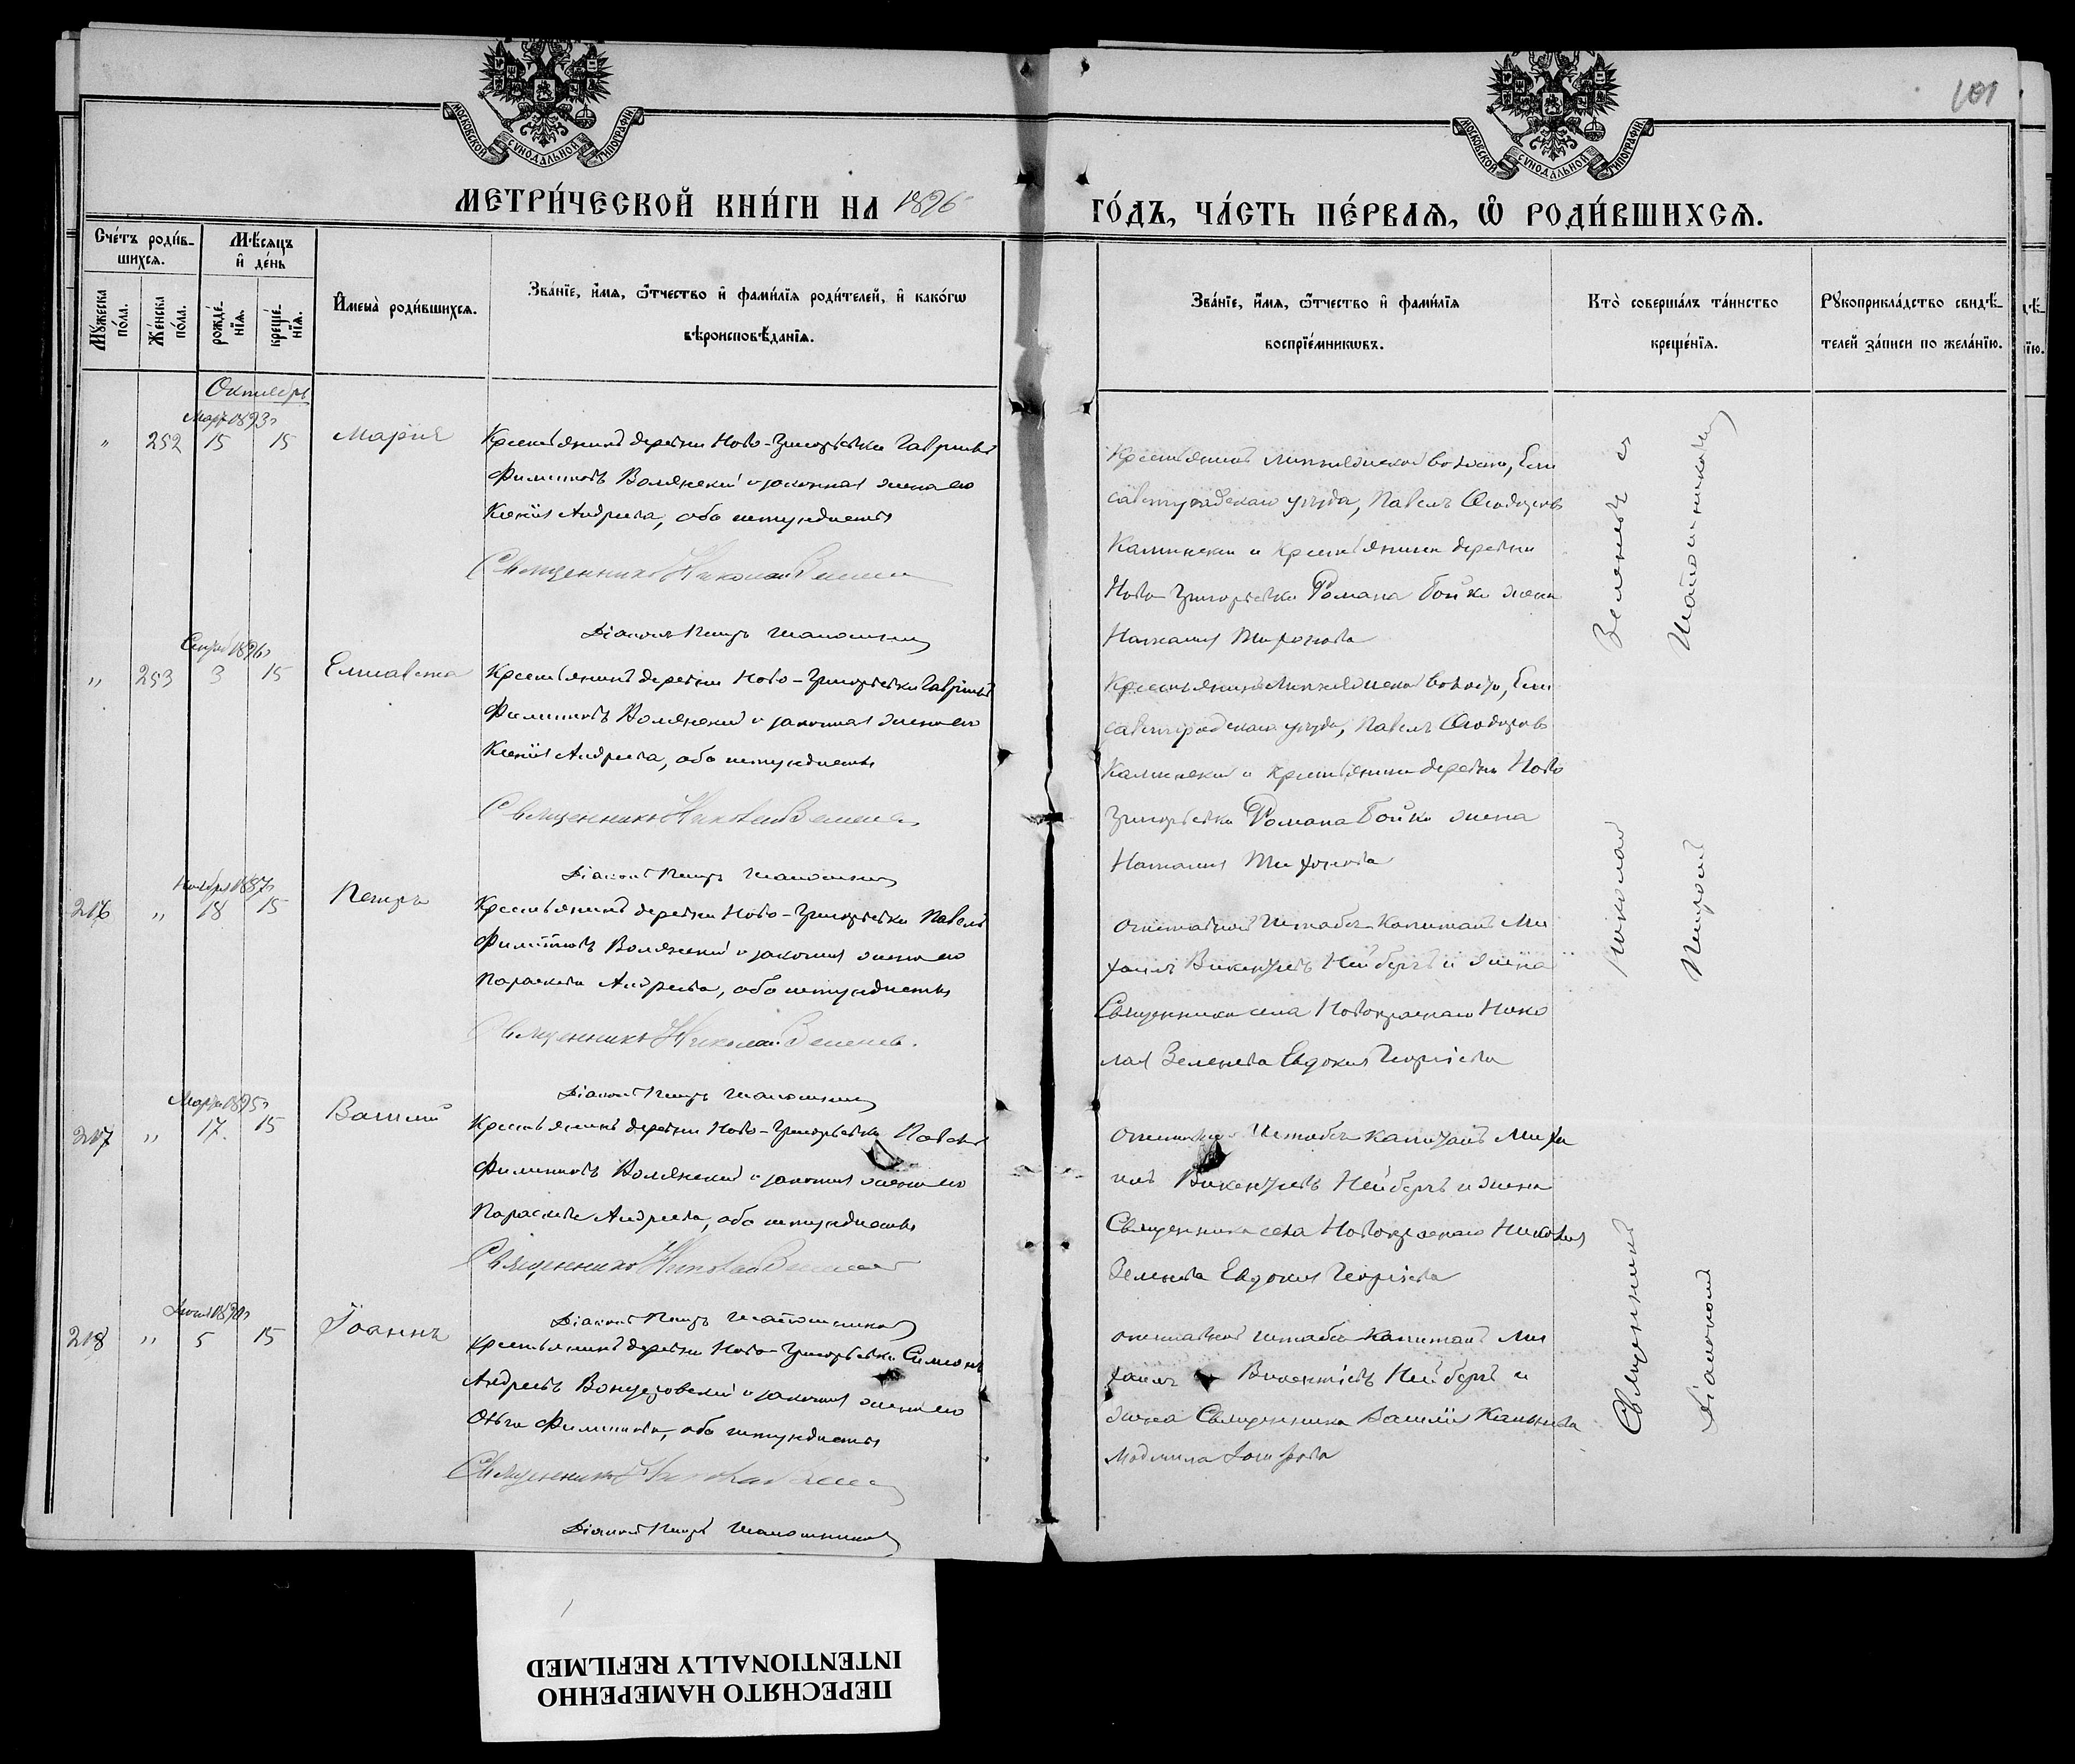 101
МОСКОВСКОЙ СѴНОДАЛЬНОЙ ТИПОГРАФІИ.
МОСКОВСКОЙ СѴНОДАЛЬНОЙ ТИПОГРАФІИ.
МЕТРИ́ЧЕСКОЙ КНИ́ГИ НА 1896
ГО́ДЪ, ЧА́СТЬ ПЕ́РВАЯ, Ѡ҆ РОДИ́ВШИХСЯ.
Сче́тъ роди́в-
шихся.
Мѣ́сяцъ
и҆ де́нь
Мꙋ́жеска
по́ла.
Же́нска
по́ла.
рожде́-
нїя.
креще́-
нїя.
И҆мена̀ роди́вшихся.
Зва́нїе, и҆́мя, ѻ҆́тчество и҆ фами́лїя роди́телей, и҆ како́гѡ
вѣроисповѣ́данїя.
Зва́нїе, и҆́мя, ѻ҆́тчество и҆ фами́лїя
воспрїе́мникѡвъ.
Кто̀ соверша́лъ та́инство
креще́нїя.
Рꙋкоприкла́дство свидѣ́-
телей за́писи по жела́нїю.
Октябрь
Март 1893г
" 252 15 15 Марія
Крестьянинъ деревни Ново-Григорьевки Гавріилъ
Филипповъ Волянскій и законная жена его
Ксенія Андреева, оба штундисты
Священникъ Николай Зеленев
Діаконъ Петръ Шапошников
Крестьянинъ волости, Ели
саветградскаго уезда, Павелъ Феодоровъ
Калинскій и крестьянина деревни
Ново-Григорьевки Романа Бойко жена
Наталия Тихонова
1896г
" 253 3 15 Елисавета
Крестьянинъ деревни Ново-Григорьевки Гавріилъ
Филипповъ Волянскій и законная жена его
Ксенія Андреева, оба штундисты
Священникъ Николай Зеленев
Діаконъ Петръ Шапошников
Крестьянинъ волости, Ели
саветградскаго уезда, Павелъ Феодоровъ
Калинскій и крестьянина деревни Ново
Григорьевки Романа Бойко жена
Наталия Тихонова
Ноября 1887г
216 " 18 15 Петръ
Крестьянинъ деревни Ново-Григорьевки Павелъ
Филипповъ Волянскій и законная жена его
Параскева Андреева, оба штундисты
Священникъ Николай Зеленев.
Діаконъ Петръ Шапошников
отставной Штабсъ-Капитанъ Ми
хаилъ Викентьевъ Нейбергъ и жена
Священника села Новокраснаго Нико
лая Зеленева Евдокия Георгіева
Март 1895г
217 " 17. 15 Василий
Крестьянинъ деревни Ново-Григорьевки Павелъ
Филипповъ Волянскій и законная жена его
Параскева Андреева, оба штундисты
Священникъ Николай Зеленев
Діаконъ Петръ Шапошников
отставной Штабсъ капитанъ Миха
илъ Викентьевъ Нейбергъ и жена
Священника села Новокраснаго Николая
Зеленева Евдокия Георгіева
218 " 5 15 Іоаннъ
Крестьянинъ деревни Ново-Григорьевки Симеонъ
Андреевъ и законная жена его
Ольга Филиппова, оба штундисты
Священникъ Николай Зеленев
Діаконъ Петръ Шапошников
отставной штабсъ капитанъ Ми
хаилъ Викентіевъ Нейбергъ и
жена Священника Василия
Людмила
Священникъ Николай Зеленевъ с
Діакономъ Петромъ Шапошниковым
ПЕРЕСНЯТО НАМЕРЕННО
INTENTIONALLY REFILMED